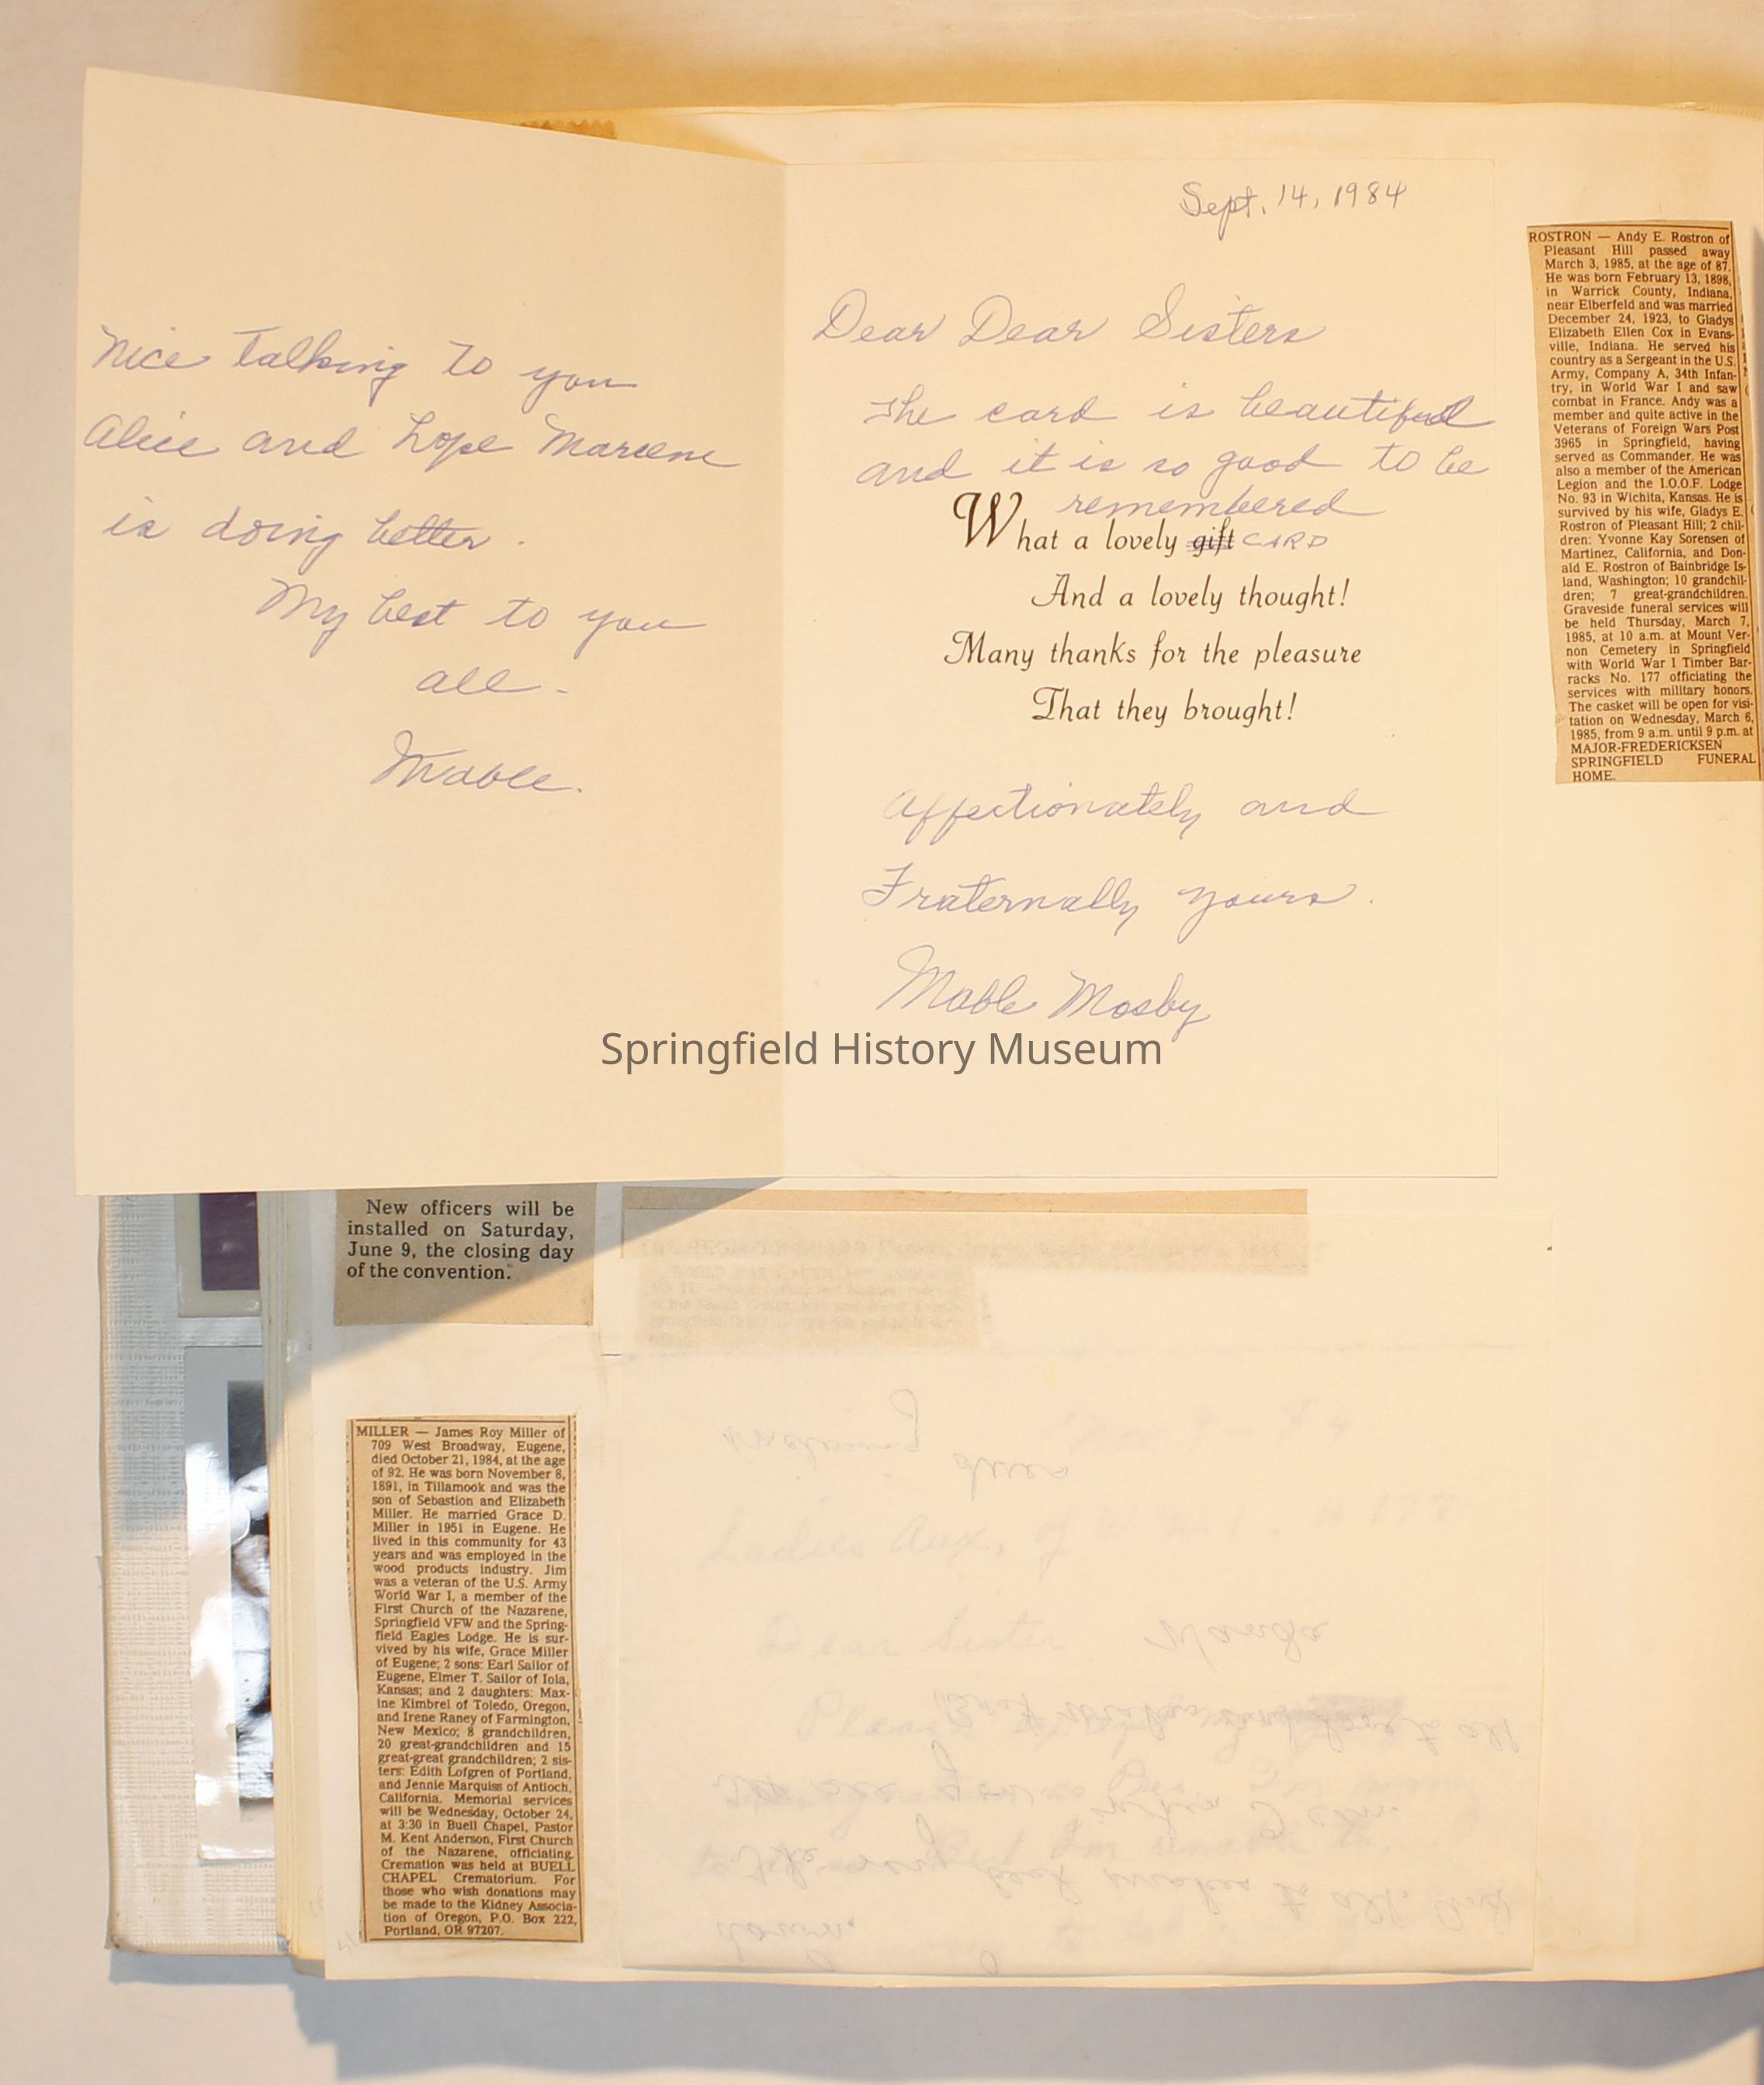 Nice talking to you
Alice and hope Marcene
is doing better.
My best to you
all.
Mable.
Sept. 14, 1984
Dear Dear Sisters
The card is beautiful
and it is so good to be
remembered
What a lovely gift CARD
And a lovely thought!
Many thanks for the pleasure
That they brought!
Affectionately and
Fraternally yours.
Mable Mosby
Springfield History Museum
ROSTRON — Andy E. Rostron of
Pleasant Hill passed away
March 3, 1985, at the age of 87.
He was born February 13, 1898,
in Warrick County, Indiana,
near Elberfeld and was married
December 24, 1923, to Gladys
Elizabeth Ellen Cox in Evans-
ville, Indiana. He served his
country as a Sergeant in the U.S.
Army, Company A, 34th Infan-
try, in World War I and saw
combat in France. Andy was a
member and quite active in the
Veterans of Foreign Wars Post
3965 in Springfield, having
served as Commander. He was
also a member of the American
Legion and the I.O.O.F. Lodge
No. 93 in Wichita, Kansas. He is
survived by his wife, Gladys E.
Rostron of Pleasant Hill; 2 chil-
dren: Yvonne Kay Sorensen of
Martinez, California, and Don-
ald E. Rostron of Bainbridge Is-
land, Washington; 10 grandchil-
dren; 7 great-grandchildren.
Graveside funeral services will
be held Thursday, March 7,
1985, at 10 a.m. at Mount Ver-
non Cemetery in Springfield
with World War I Timber Bar-
racks No. 177 officiating the
services with military honors.
The casket will be open for visi-
tation on Wednesday, March 6,
1985, from 9 a.m. until 9 p.m. at
MAJOR-FREDERICKSEN
SPRINGFIELD FUNERAL
HOME.
New officers will be
installed on Saturday,
June 9, the closing day
of the convention.
MILLER — James Roy Miller of
709 West Broadway, Eugene,
died October 21, 1984, at the age
of 92. He was born November 8,
1891, in Tillamook and was the
son of Sebastion and Elizabeth
Miller. He married Grace D.
Miller in 1951 in Eugene. He
lived in this community for 43
years and was employed in the
wood products industry. Jim
was a veteran of the U.S. Army
World War I, a member of the
First Church of the Nazarene,
Springfield VFW and the Spring-
field Eagles Lodge. He is sur-
vived by his wife, Grace Miller
of Eugene; 2 sons: Earl Sailor of
Eugene, Elmer T. Sailor of Iola,
Kansas; and 2 daughters: Max-
ine Kimbrel of Toledo, Oregon,
and Irene Raney of Farmington,
New Mexico; 8 grandchildren,
20 great-grandchildren and 15
great-great grandchildren; 2 sis-
ters: Edith Lofgren of Portland,
and Jennie Marquiss of Antioch,
California. Memorial services
will be Wednesday, October 24,
at 3:30 in Buell Chapel, Pastor
M. Kent Anderson, First Church
of the Nazarene, officiating.
Cremation was held at BUELL
CHAPEL Crematorium. For
those who wish donations may
be made to the Kidney Associa-
tion of Oregon, P.O. Box 222,
Portland, OR 97207.
Ladies Aux. of
Wanda